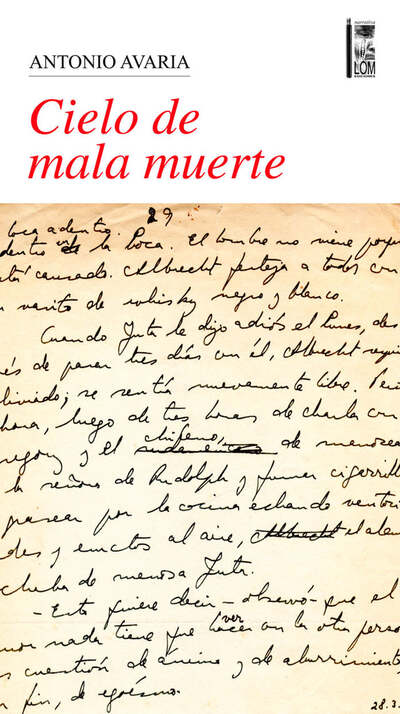 ANTONIO AVARIA
narrativa
LOM
Cielo de
mala muerte
29
boca adentro.
dentro de la boca. El hombre no viene porque
está cansado. Albrecht festeja a todos con
un vasito de whisky negro y blanco.
Cuando Juta le dijo adiós el lunes, des
és de pasar tres días con él, Albrecht
aliviado; se sentía nuevamente libre. Pero
ahora, luego de tres horas de charla con
y el chileno, de
la señora de Rudolph y fumar cigarrillo
pasear por la cocina echando
des y eructos al aire, Albrecht el
de menosa Juta.
- Esto quiere decir - observó - que el
mor nada tiene que ver con la otra perso
es cuestión de ánimo y de aburrimiento
fin, de egoísmo.
28.3.